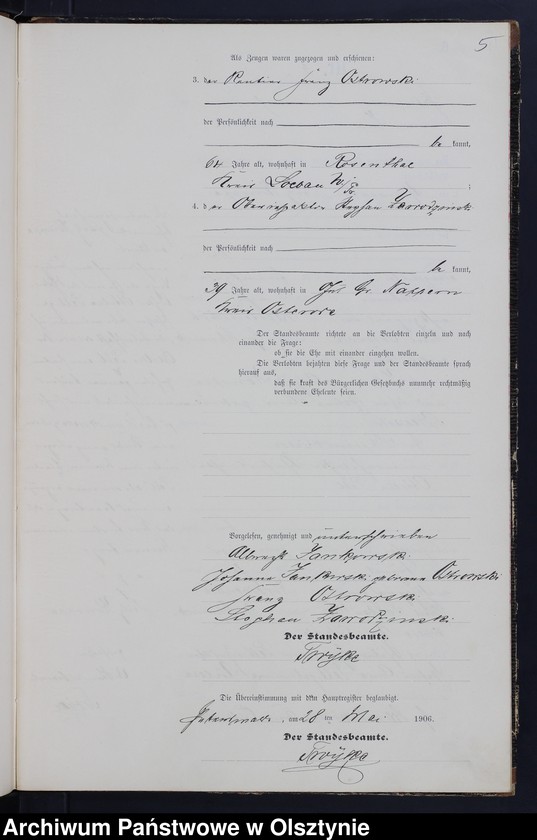 5
Als Zeugen waren zugezogen und erschienen:
3. der Rentier Franz Ostrowski
der Persönlichkeit nach
be kannt,
64 Jahre alt, wohnhaft in Rosenthal
Kreis Loebau W/Pr ;
4. der Stephan Zawodzinski
der Persönlichkeit nach
be kannt,
39 Jahre alt, wohnhaft in Gut Gr. Nappern
Kreis Osterode
Der Standesbeamte richtete an die Verlobten einzeln und nach
einander die Frage:
ob sie die Ehe mit einander eingehen wollen.
Die Verlobten bejahten diese Frage und der Standesbeamte sprach
hierauf aus,
daß sie kraft des Bürgerlichen Gesetzbuchs nunmehr rechtmäßig
verbundene Eheleute seien.
Vorgelesen, genehmigt und unterschrieben
Albrecht Jankowski
Johanna Jankowski geborene Ostrowski
Franz Ostrowski
Stephan Zawodzinski
Der Standesbeamte.
Die Übereinstimmung mit dem Hauptregister beglaubigt.
, am 28 ten Mai 1906.
Der Standesbeamte.
Archiwum Państwowe w Olsztynie